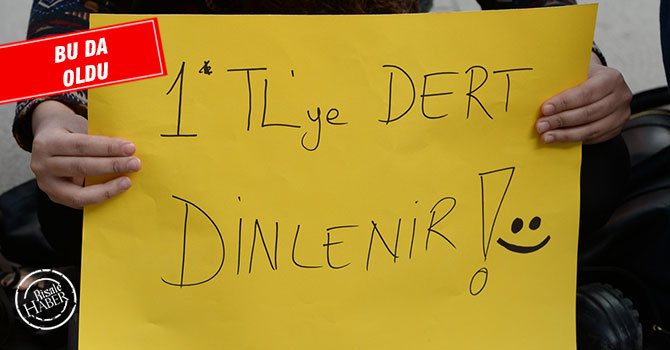 BU DA
OLDU
1* TL'ye DERT
DİNLENİR!
Risale
HABER